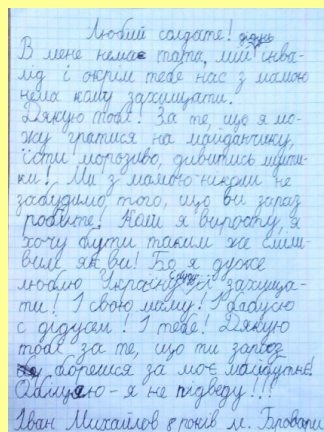 Любий солдате!
В мене немає тата, мій дідусь інва-
лід і окрім тебе нас з мамою
нема кому захищати.
Дякую тобі! За те, що я мо-
жу гратися на майданчику,
їсти морозиво, дивитись мульти-
ки! Ми з мамою ніколи не
забудимо того, що ви зараз
робите! Коли я виросту, я
хочу бути таким же сміли-
вим як ви! Бо я дуже
люблю Україну! і буду її захища-
ти! І свою маму! І бабусю
с дідусем! І тебе! Дякую
тобі за те, що ти зараз
борешся за моє майбутнє!
Обіцяю - я не підведу!!!
Іван Михайлов років м. Бровари